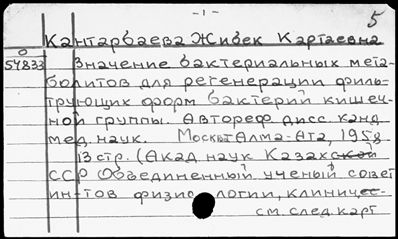 -1-
5
Кантарбаева Жибек Картаевна
0
54833
Значение бактериальных мета-
болитов для регенерации филь-
трующих форм бактерий кишеч-
ной группы. Автореф дисс. канд
мед. наук. Алма-Ата, 1958
13 стр. (Акад. наук Казахской
ССР Объединенный ученый совет
ин-тов физиологии, клиничес-
см. след. карт